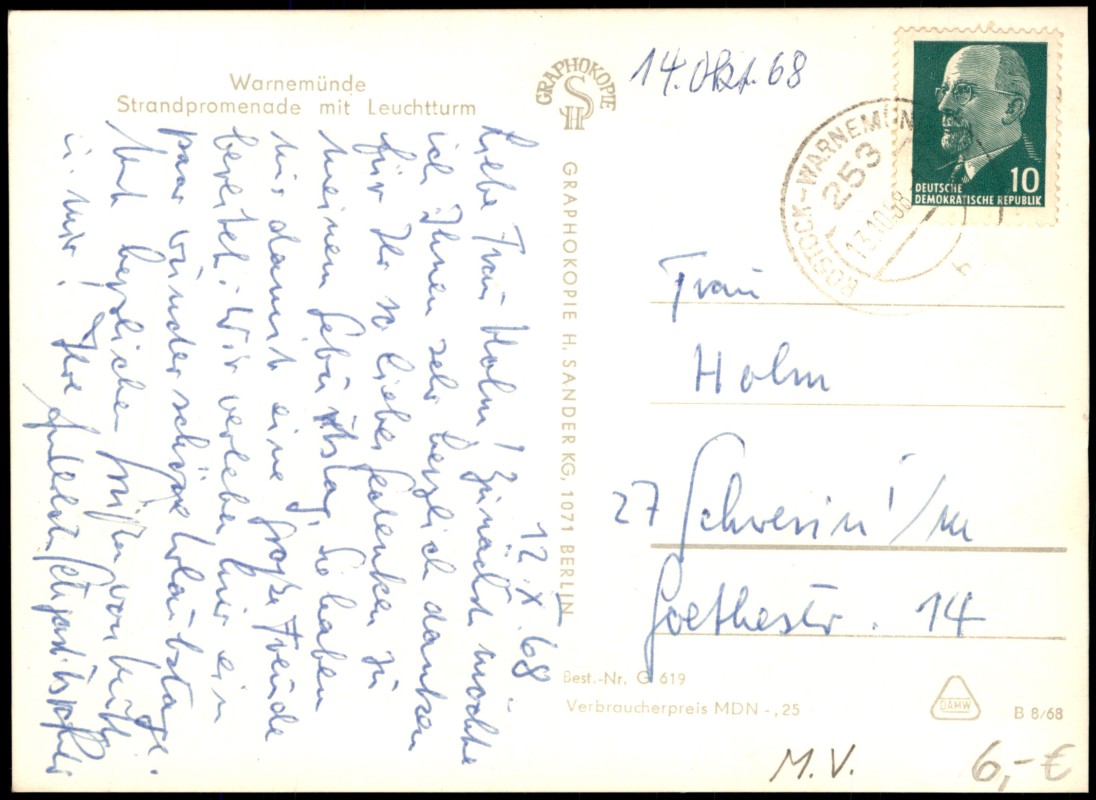 Warnemünde
Strandpromenade mit Leuchtturm
12. X. 68
Liebe Frau Holm! Zunächst möchte
ich Ihnen sehr herzlich danken
für Ihr so liebes Gedenken zu
meinem Geburtstag, Sie haben
mir damit eine große Freude
bereitet. Wir verleben hier ein
paar wunderschöne Urlaubstage.
Mit herzlichen Grüßen von
u. mir!
Ihre
GRAPHOKOPIE
H S
GRAPHOKOPIE H. SANDER KG, 1071 BERLIN
14. Okt. 68
ROSTOCK-WARNEMÜN
253
13.10.68
DEUTSCHE
DEMOKRATISCHE REPUBLIK
10
Frau
Holm
27 Schwerin i/M
Goethestr. 14
Best.-Nr. G 619
Verbraucherpreis MDN -,25
DAMW
B 8/68
M.V.
6,- €